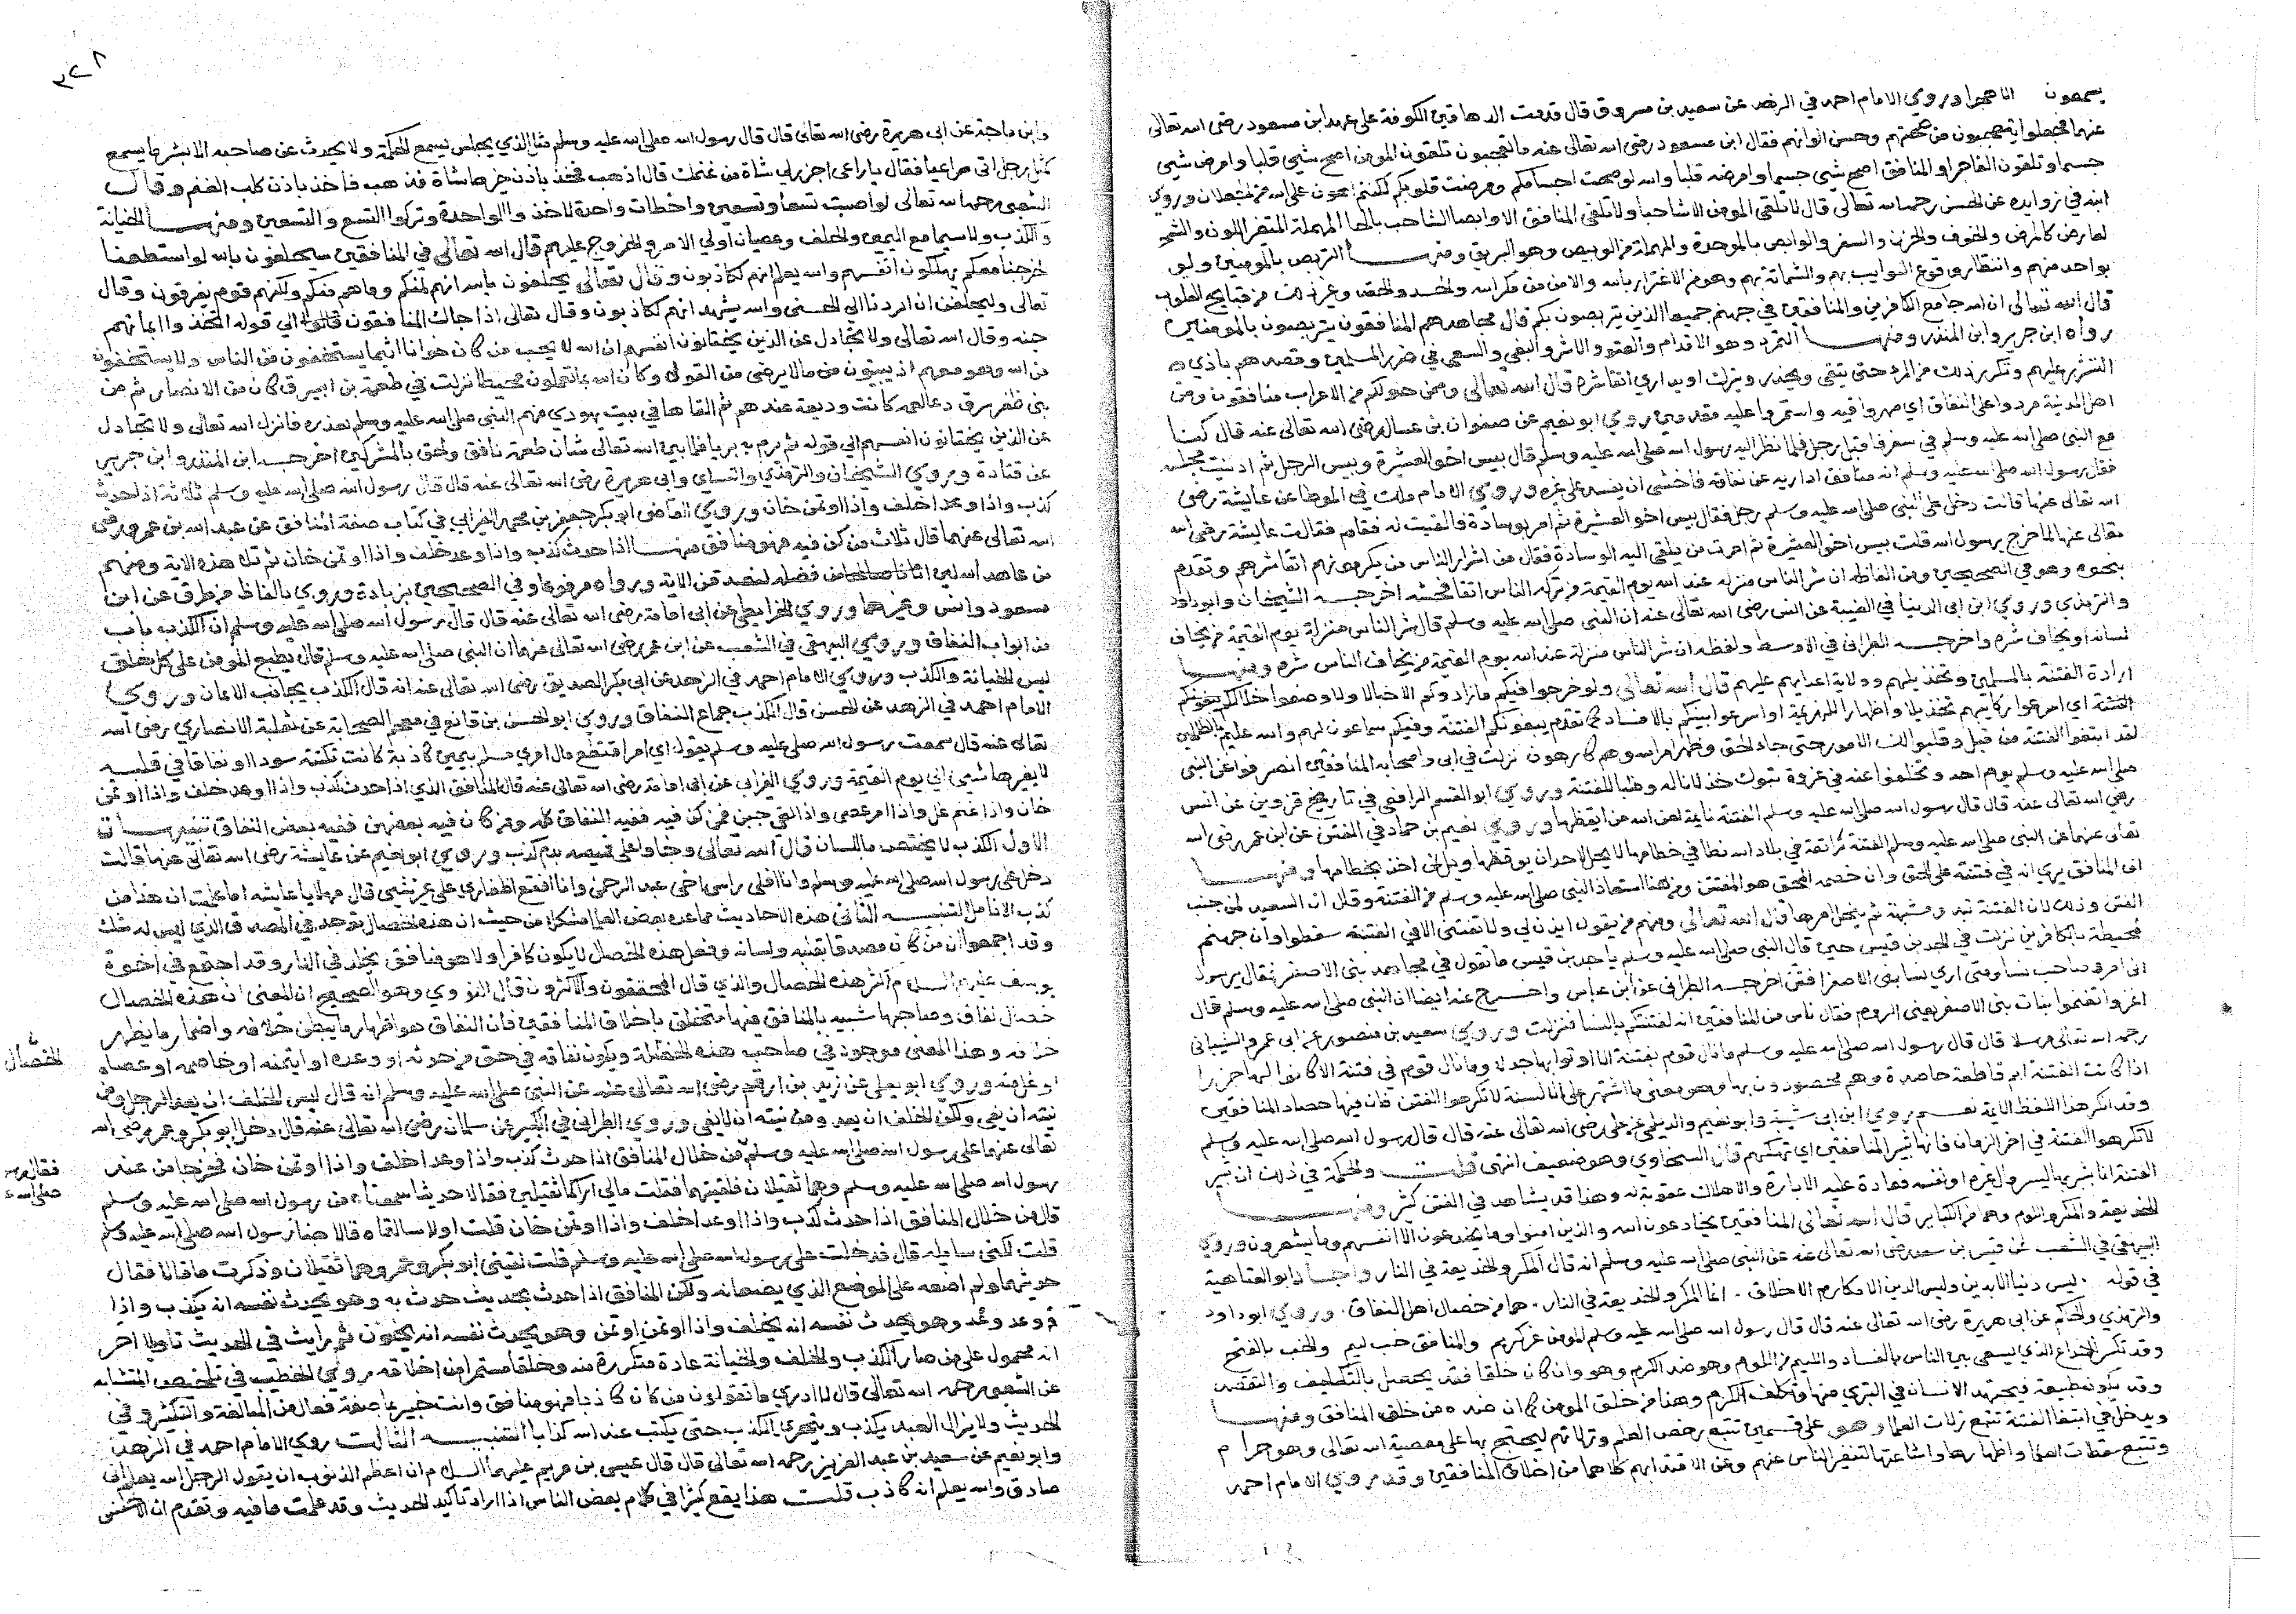 يسمعون الا همرا وروي الامام احمد في الزهد عن سعيد بن مسروق قال قدمت الدهاقين الكوفة على عهد ابن مسعود رضي الله تعالى
عنهما فجعلوا يتعجبون من صحتهم وحسن الوانهم فقال ابن مسعود رضي الله تعالى عنه ما تتعجبون تلقون المومن اصح شي قلبا وامرض شي
جسما وتلقون الفاجر او المنافق اصح شي جسما وامرضه قلبا والله لو صحت اجسامكم ومرضت قلوبكم لكنتم اهون على الله من الجعلان وروي
ابنه في زوايده عن الحسن رحمه الله تعالى قال لا تلقى المومن الا شاحبا ولا تلقى المنافق الا وابصا الشاحب بالحا المهملة المتغير اللون والشحب
لعارض كالمرض والخوف والحزن والسفر والوابص بالموحدة والمهملة من الوبيص وهو البريق ومنها التربص بالمومنين ولو
بواحد منهم وانتظار وقوع النوايب بهم والشماتة بهم وهو من الاغترار بالله والامن من مكر الله والحسد والحقد وغير ذلك من قبايح القلوب
قال الله تعالى ان الله جامع الكافرين والمنافقين في جهنم جميعا الذين يتربصون بكم قال مجاهد هم المنافقون يتربصون بالمومنين
رواه ابن جرير وابن المنذر ومنها التمرد وهو الاقدام والعتو والاشر والبغي والسعي في ضرر المسلمين وقصدهم باذي
الشر عليهم وتكرير ذلك من المرء حتى يتقى ويحذر ويترك او يداري اتقا شره قال الله تعالى وممن حولكم من الاعراب منافقون ومن
اهل المدينة مردوا على النفاق اي مهروا فيه واستمروا عليه وروي ابو نعيم عن صفوان بن عسال رضي الله تعالى عنه قال كنا
مع النبي صلى الله عليه وسلم في سفر فاقبل رجل فلما نظر اليه رسول الله صلى الله عليه وسلم قال بيس اخو العشرة وبيس الرجل ثم ادنيت مجلسه
فقال رسول الله صلى الله عليه وسلم انه منافق اداريه عن نفاقه فاخشى ان يفسد على غيره وروي الامام مالك في الموطا عن عايشة رضي
الله تعالى عنها قالت دخل على النبي صلى الله عليه وسلم رجل فقال بيس اخو العشرة ثم امر بوسادة فالقيت له فقام فقالت عايشة رضي الله
تعالى عنها لما خرج يرسول الله قلت بيس اخو العشرة ثم امرت من يلقى اليه الوسادة فقال من اشرار الناس من يكرمونهم اتقا شرهم وتقدم
بنحوه وهو في الصحيحين ومن الفاظه ان شر الناس منزلة عند الله يوم القيمة من تركه الناس اتقا فحشه اخرجه الشيخان وابو داود
والترمذي وروي ابن ابي الدنيا في الغيبة عن انس رضي الله تعالى عنه ان النبي صلى الله عليه وسلم قال شر الناس منزلة يوم القيمة من يخاف
لسانه او يخاف شره واخرجه الطبراني في الاوسط ولفظه ان شر الناس منزلة عند الله يوم القيمة من يخاف الناس شره ومنها
ارادة الفتنة بالمسلمين وتخذيلهم وولاية اعدايهم عليهم قال الله تعالى ولو خرجوا فيكم ما زادوكم الا خبالا ولاوضعوا خلالكم يبغونكم
الفتنة اي اسرعوا تخذيلا واظهارا للهزيمة او اسرعوا بينكم بالافساد كما تقدم يبغونكم الفتنة وفيكم سماعون لهم والله عليم بالظالمين
لقد ابتغوا الفتنة من قبل وقلبوا لك الامور حتى جاء الحق وظهر امر الله وهم كارهون نزلت في ابي واصحابه المنافقين انصرفوا عن النبي
صلى الله عليه وسلم يوم احد وتخلفوا عنه في غزوة تبوك خذلانا له وطلبا للفتنة وروي ابو القسم الرافعي في تاريخ قزوين عن انس
رضي الله تعالى عنه قال قال رسول الله صلى الله عليه وسلم الفتنة نايمة لعن الله من ايقظها وروي نعيم بن حماد في الفتن عن ابن عمر رضي الله
تعالى عنهما عن النبي صلى الله عليه وسلم الفتنة راتعة في بلاد الله تطا في خطامها لا يحل لاحد ان يوقظها ويل لمن اخذ بخطامها ومنها
ان المنافق يري انه في فتنته على الحق وان خصمه المحق هو المفتتن ومن هنا استعاذ النبي صلى الله عليه وسلم من الفتنة وقال ان السعيد لمن جنب
الفتن وذلك لان الفتنة تبدو مشبهة ثم ينجلي امرها قال الله تعالى ومنهم من يقول ايذن لي ولا تفتني الا في الفتنة سقطوا وان جهنم
لمحيطة بالكافرين نزلت في الجد بن قيس حين قال النبي صلى الله عليه وسلم يا جد بن قيس ما تقول في مجاهدة بني الاصفر فقال يرسول
اني امرو صاحب نسا ومتى اري نسا بني الاصفر افتتن اخرجه الطبراني عن ابن عباس واخرج عنه ايضا ان النبي صلى الله عليه وسلم قال
اغزوا تغنموا بنات بني الاصفر يعني الروم فقال ناس من المنافقين انه ليفتنكم بالنسا فنزلت وروي سعيد بن منصور عن ابي عمرو الشيباني
رحمه الله تعالى مرسلا قال قال رسول الله صلى الله عليه وسلم ما نال قوم بفتنة الا اوتوا بها جدلا وما نال قوم في فتنة الا كانوا لها حرزا
اذا كانت الفتنة فاطعة حاصدة وهم محصودون بها وهو معنى ما اشتهر على الالسنة لا تكرهوا الفتن فان فيها حصاد المنافقين
وقد انكر هذا اللفظ الايمة نعم روي ابن ابي شيبة وابو نعيم والديلمي عن علي رضي الله تعالى عنه قال قال رسول الله صلى الله عليه وسلم
لا تكرهوا الفتنة في اخر الزمان فانها تبير المنافقين اي تهلكهم قال السخاوي وهو ضعيف انتهى قلت والحكمة في ذلك ان تبير
الفتنة عادة عليه الابارة والاهلاك عقوبة له وهذا قد يشاهد في الفتن كثيرا ومنها
الخديعة والمكر واللوم وهما من الكباير قال الله تعالى في المنافقين يخادعون الله والذين امنوا وما يخدعون الا انفسهم وما يشعرون وروي
البيهقي في الشعب عن قيس بن سعد رضي الله تعالى عنه عن النبي صلى الله عليه وسلم انه قال المكر والخديعة في النار واجاد ابو العتاهية
في قوله ليس دنيا الا بدين وليس الدين الا مكارم الاخلاق انما المكر والخديعة في النار هما من خصال اهل النفاق وروي ابو داود
والترمذي والحاكم عن ابي هريرة رضي الله تعالى عنه قال قال رسول الله صلى الله عليه وسلم المومن غر كريم والمنافق خب ليم والخب بالفتح
وقد تكسر الخداع الذي يسعى بين الناس بالفساد والليم من اللوم وهو ضد الكرم وهو وان كان خلقا فقد يحصل بالتكليف والتقصد
وقد يكون طبيعة فيجتهد الانسان في التبري منها وتكلف الكرم وهذا من خلق المومن كما ان ضده من خلق المنافق ومنها
ويدخل في ابتغا الفتنة تتبع زلات العلما وهو على قسمين تتبع رخص العلم وزلاتهم ليحتج بها على معصية الله تعالى وهو حرام
وتتبع سقطات العلما واظهارها واشاعتها لتنفير الناس عنهم وعن الاقتدا بهم كلاهما من اخلاق المنافقين وقد روي الامام احمد
٢٢٨
وابن ماجة عن ابي هريرة رضي الله تعالى قال قال رسول الله صلى الله عليه وسلم مثل الذي يجلس يسمع الحكمة ولا يحدث عن صاحبه الا بشر ما يسمع
كمثل رجل اتى راعيا فقال يا راعي اجزر لي شاة من غنمك قال اذهب فخذ باذن خيرها شاة فذهب فاخذ باذن كلب الغنم وقال
الشعبي رحمه الله تعالى لو اصبت تسعا وتسعين واخطات واحدة لاخذوا الواحدة وتركوا التسع والتسعين ومنها الخيانة
والكذب ولا سيما مع اليمين والخلف وعصيان اولي الامر والخروج عليهم قال الله تعالى في المنافقين سيحلفون بالله لو استطعنا
لخرجنا معكم يهلكون انفسهم والله يعلم انهم لكاذبون وقال تعالى يحلفون بالله انهم لمنكم وما هم منكم ولكنهم قوم يفرقون وقال
تعالى وليحلفن ان اردنا الا الحسنى والله يشهد انهم لكاذبون وقال تعالى اذا جاك المنافقون قالوا الى قوله اتخذوا ايمانهم
جنه وقال الله تعالى ولا تجادل عن الذين يختانون انفسهم ان الله لا يحب من كان خوانا اثيما يستخفون من الناس ولا يستخفون
من الله وهو معهم اذ يبيتون ما لا يرضى من القول وكان الله بما يعملون محيطا نزلت في طعمة بن ابيرق كان من الانصار ثم من
بني ظفر سرق درعا لعمه كانت وديعة عندهم ثم القاها في بيت يهودي منهم النبي صلى الله عليه وسلم بعذره فانزل الله تعالى ولا تجادل
عن الذين يختانون انفسهم الى قوله ثم يرم به بريا فلما بين الله تعالى شان طعمة نافق ولحق بالمشركين اخرجه ابن المنذر وابن جرير
عن قتادة وروي الشيخان والترمذي والنساي وابي هريرة رضي الله تعالى عنه قال قال رسول الله صلى الله عليه وسلم ثلاثة اذا حدث
كذب واذا وعد اخلف واذا اوتمن خان وروي القاضي ابو بكر جعفر بن محمد الفريابي في كتاب صفة المنافق عن عبد الله بن عمرو رضي
الله تعالى عنهما قال ثلاث من كن فيه فهو منافق منها اذا حدث كذب واذا وعد خلف واذا اوتمن خان ثم تلى هذه الاية ومنهم
من عاهد الله لين اتانا من فضله لنصدقن الاية ورواه مرفوعا وفي الصحيحين بزيادة وروي بالفاظ من طرق عن ابن
مسعود وانس وغيرهما وروي الخرايطي عن ابي امامة رضي الله تعالى عنه قال قال رسول الله صلى الله عليه وسلم ان الكذب باب
من ابواب النفاق وروي البيهقي في الشعب عن ابن عمر رضي الله تعالى عنهما ان النبي صلى الله عليه وسلم قال يطبع المومن على كل خلق
ليس الخيانة والكذب وروي الامام احمد في الزهد عن ابي بكر الصديق رضي الله تعالى عنه انه قال الكذب يجانب الايمان وروي
الامام احمد في الزهد عن الحسن قال الكذب جماع النفاق وروي ابو الحسن بن قانع في معجم الصحابة عن ثعلبة الانصاري رضي الله
تعالى عنه قال سمعت رسول الله صلى عليه وسلم يقول اي امرا اقتطع مال امري مسلم بيمين كاذبة كانت نكتة سودا ونفاقا في قلبه
لا يغيرها شي الى يوم القيمة وروي الفريابي عن ابي امامة رضي الله تعالى عنه قال المنافق الذي اذا حدث كذب واذا وعد خلف واذا اوتمن
خان واذا غنم غل واذا امر عصى واذا لقي جبن فمن كن فيه ففيه النفاق كله ومن كان فيه بعضهن ففيه بعض النفاق تنبيهات
الاول الكذب لا يختص باللسان قال الله تعالى وجاوا على قميصه بدم كذب وروي ابو نعيم عن عايشة رضي الله تعالى عنها قالت
دخل على رسول الله صلى الله عليه وسلم وانا افلي راس اخي عبد الرحمن وانا اقصع اظفاري على غير شي قال مه يا عايشة اما علمت ان هذا من
كذب الانامل التنبيه الثاني هذه الاحاديث مما عده بعض العلما مشكلا من حيث ان هذه الخصال توجد في المصدق الذي ليس له شك
وقد اجمعوا ان من كان مصدقا بقلبه ولسانه وفعل هذه الخصال لا يكون كافرا ولا هو منافق يخلد في النار وقد اجتمع في اخوة
يوسف عليه السلام اكثر هذه الخصال والذي قال المحققون والاكثرون قال النووي وهو الصحيح ان المعنى ان هذه الخصال
خصال نفاق وصاحبها شبيه بالمنافق فيها متخلق باخلاق المنافقين فان النفاق هو اظهار ما يبطن خلافه واضمار ما يظهر
خلافه وهذا المعنى موجود في صاحب هذه الخصلة ويكون نفاقه في حق من حدثه او وعده او ايتمنه او خاصمه او عصاه
الخصال
او غل منه وروي ابو يعلى عن زيد بن ارقم رضي الله تعالى عنه عن النبي صلى الله عليه وسلم انه قال ليس الخلف ان يعد الرجل ومن
نيته ان يفي ولكن الخلف ان يعد ومن نيته ان لا يفي وروي الطبراني في الكبير عن سلمان رضي الله تعالى عنه قال دخل ابو بكر وعمر رضي الله
تعالى عنهما على رسول الله صلى الله عليه وسلم من خلال المنافق اذا حدث كذب واذا وعد اخلف واذا اوتمن خان فخرجا من عند
فقال رسول
صلى الله ع
رسول الله صلى الله عليه وسلم وهما ثقيلان فلقيتهما فقلت مالي اراكما ثقيلين فقالا حديثا سمعناه من رسول الله صلى الله عليه وسلم
قال من خلال المنافق اذا حدث كذب واذا وعد اخلف واذا اوتمن خان قلت اولا سالتماه قالا هبنا رسول الله صلى الله عليه وسلم
قلت لكني سايله قال فدخلت على رسول الله صلى الله عليه وسلم قلت لقيني ابو بكر وعمر وهما ثقيلان وذكرت ما قالا فقال
حدثتهما ولم اضعه على الموضع الذي يضعانه ولكن المنافق اذا حدث بحديث حدث به وهو يحدث نفسه انه يكذب واذا
وعد وعد وهو يحدث نفسه انه يخلف واذا اوتمن اوتمن وهو يحدث نفسه انه يخون ثم رايت في الحديث تاويلا اخر
انه محمول على من صار الكذب والخلف والخيانة عادة متكررة منه وخلقا مستمرا من اخلاقه وروي الخطيب في تلخيص المتشابه
عن الشعبي رحمه الله تعالى قال لا ادري ما تقولون من كان كاذبا فهو منافق وانت خبير بما صيغة فعال من المبالغة والتكثير وفي
الحديث ولا يزال العبد يكذب ويتحرى الكذب حتى يكتب عند الله كذابا التنبيه الثالث روي الامام احمد في الزهد
وابو نعيم عن سعيد بن عبد العزيز رحمه الله تعالى قال قال عيسى بن مريم عليهما السلام ان اعظم الذنوب ان يقول الرجل الله يعلم اني
صادق والله يعلم انه كاذب قلت هذا يقع كثيرا في كلام بعض الناس اذا اراد تاكيد الحديث وقد علمت ما فيه وتقدم ان الاخنس